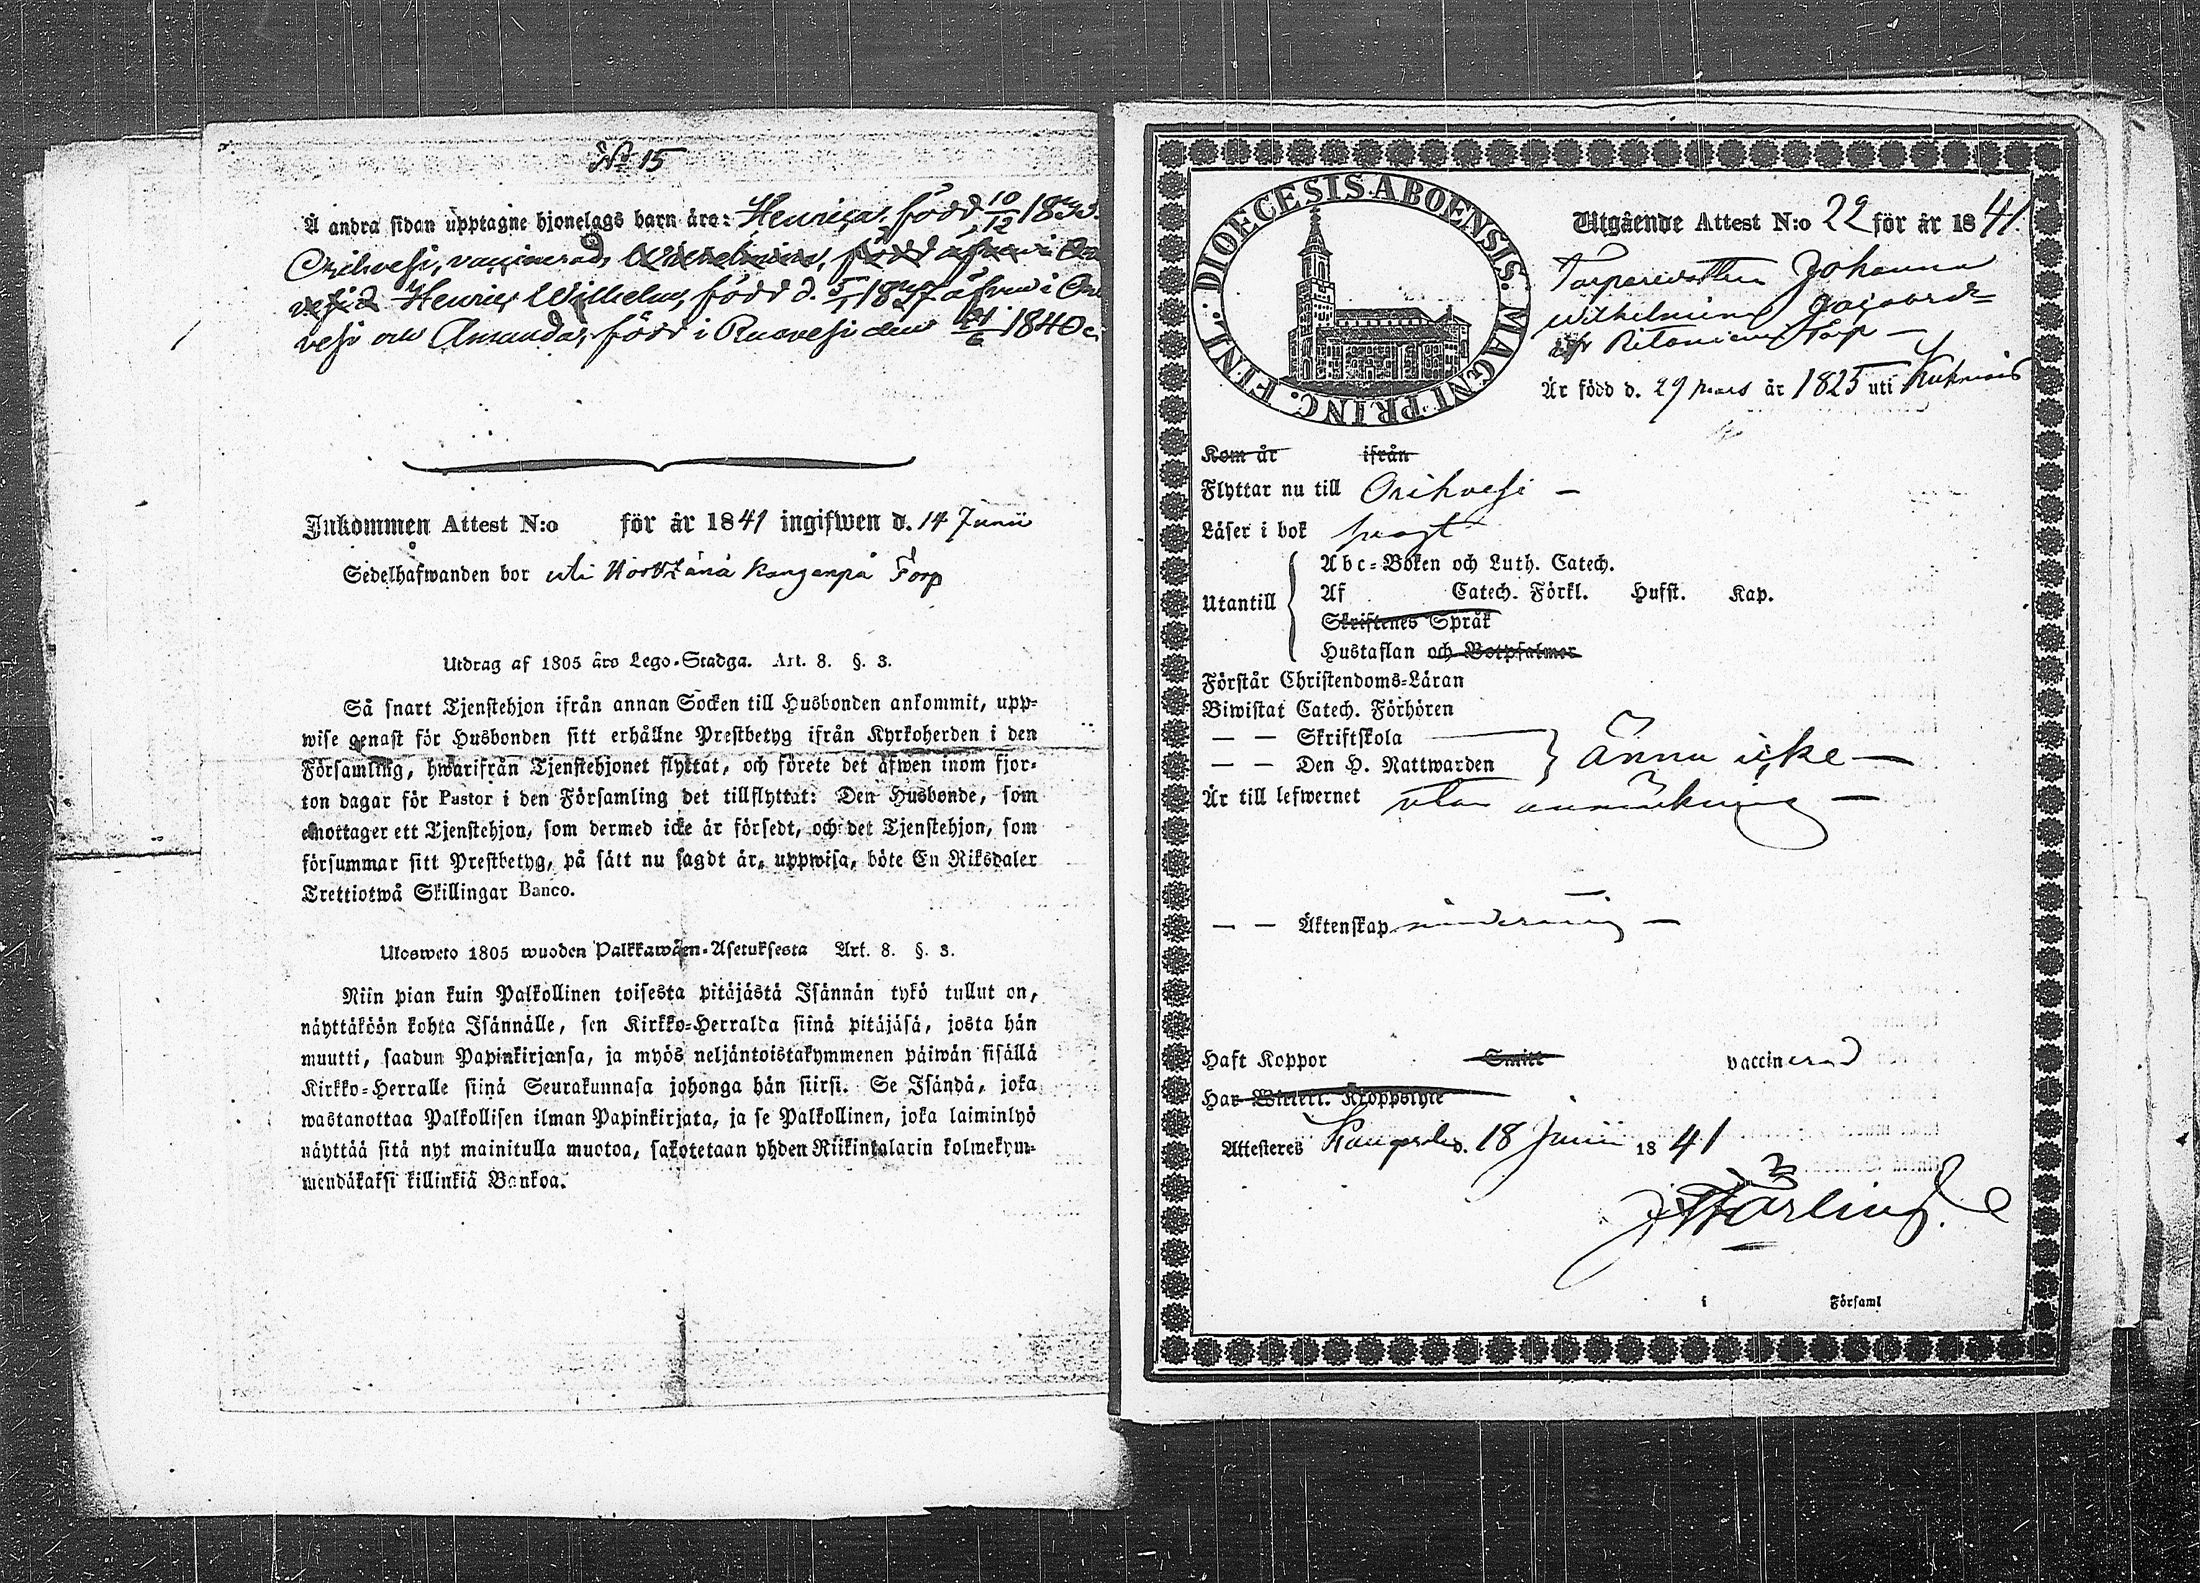 No 15
Å andra sidan upptagne hjonelags barn äro: Henrica, född 10/12 183
Orihvesi, vaccinerad, Wilhelmina, född äfven i Ori
vesi d Henric Wilhelm, född d. 5/1 1837 äfven i Ori
vesi och Amanda, född i Ruovesi den 21/6 1840
Inkommen Attest N:o för år 1841 ingifwen d. 14 Junii
Sedelhafwanden bor uti Torp
Utdrag af 1805 års Lego-Stadga. Art. 8. §. 3.
Så snart Tjenstehjon ifrån annan Socken till Husbonden ankommit, upp-
wise genast för Husbonden sitt erhållne Prestbetyg ifrån Kyrkoherden i den
Församling, hwarifrån Tjenstehjonet flyttat, och förete det äfwen inom fjor-
ton dagar för Pastor i den Församling det tillflyttat: Den Husbonde, som
emottager ett Tjenstehjon, som dermed icke är försedt, och det Tjenstehjon, som
försummar sitt Prestbetyg, på sätt nu sagdt är, uppwisa, böte En Riksdaler
Trettiotwå Skillingar Banco.
Ulosweto 1805 wuoden Palkkawäen-Asetuksesta Art. 8. §. 3.
Niin pian kuin Palkollinen toisesta pitäjästä Isännän tykö tullut on,
näyttäköön kohta Isännälle, sen Kirkko-Herralda siinä pitäjäsä, josta hän
muutti, saadun Papinkirjansa, ja myös neljäntoistakymmenen päiwän sisällä
Kirkko-Herralle siinä Seurakunnasa johonga hän siirsi. Se Isändä, joka
wastanottaa Palkollisen ilman Papinkirjata, ja se Palkollinen, joka laiminlyö
näyttää sitä nyt mainitulla muotoa, sakotetaan yhden Riikintalarin kolmekym-
mendäkaksi killinkiä Bankoa.
DIOECESIS ABOENSIS. MAGNI PRINC. FINL.
Utgående Attest N:o 22 för år 1841.
Torparedottren Johanna
Wilhelmina
Torp
Är född d. 29 mars år 1825 uti
Kom år ifrån
Flyttar nu till Orihvesi
Läser i bok svagt
Utantill
Abc-Boken och Luth. Catech.
Af Catech. Förkl. Hufst. Kap.
Skriftenes Språk
Hustaflan och Botpsalmer
Förstår Christendoms-Läran
Biwistat Catech. Förhören
— — Skriftskola
— — Den H. Nattwarden ännu icke
Är till lefwernet utan anmärkning
— — Äktenskap
Haft Koppor Smitt vaccinerad
Har Wener. Kroppslyte
Attesteres d. 18 Junii 1841
i Församl